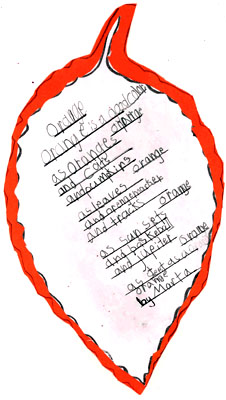 Orange
Oringe is a good color
as oranges orange
and cats
and pumpkins
as leaves orange
and orange marker
and tracts orange
as sun sets
and basketball
and jupiter
orange
as
orange
by Marta